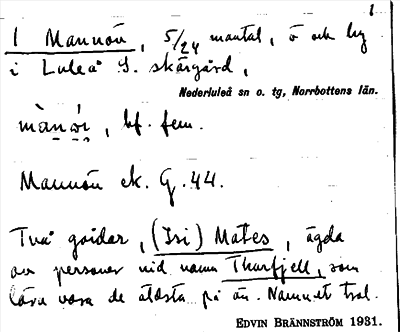 1
1 Mannön, 5/24 mantal, ö och by
i Luleå S. skärgård,
Nederluleå sn o. tg, Norrbottens län.
mànǿi, bf. fem.
Mannön ek. G. 44.
Två gårdar, (Isi) Mates, ägda
av personer vid namn Thurfjell, som
lära vara de äldsta på ön. Namnet trol.
EDVIN BRÄNNSTRÖM 1931.